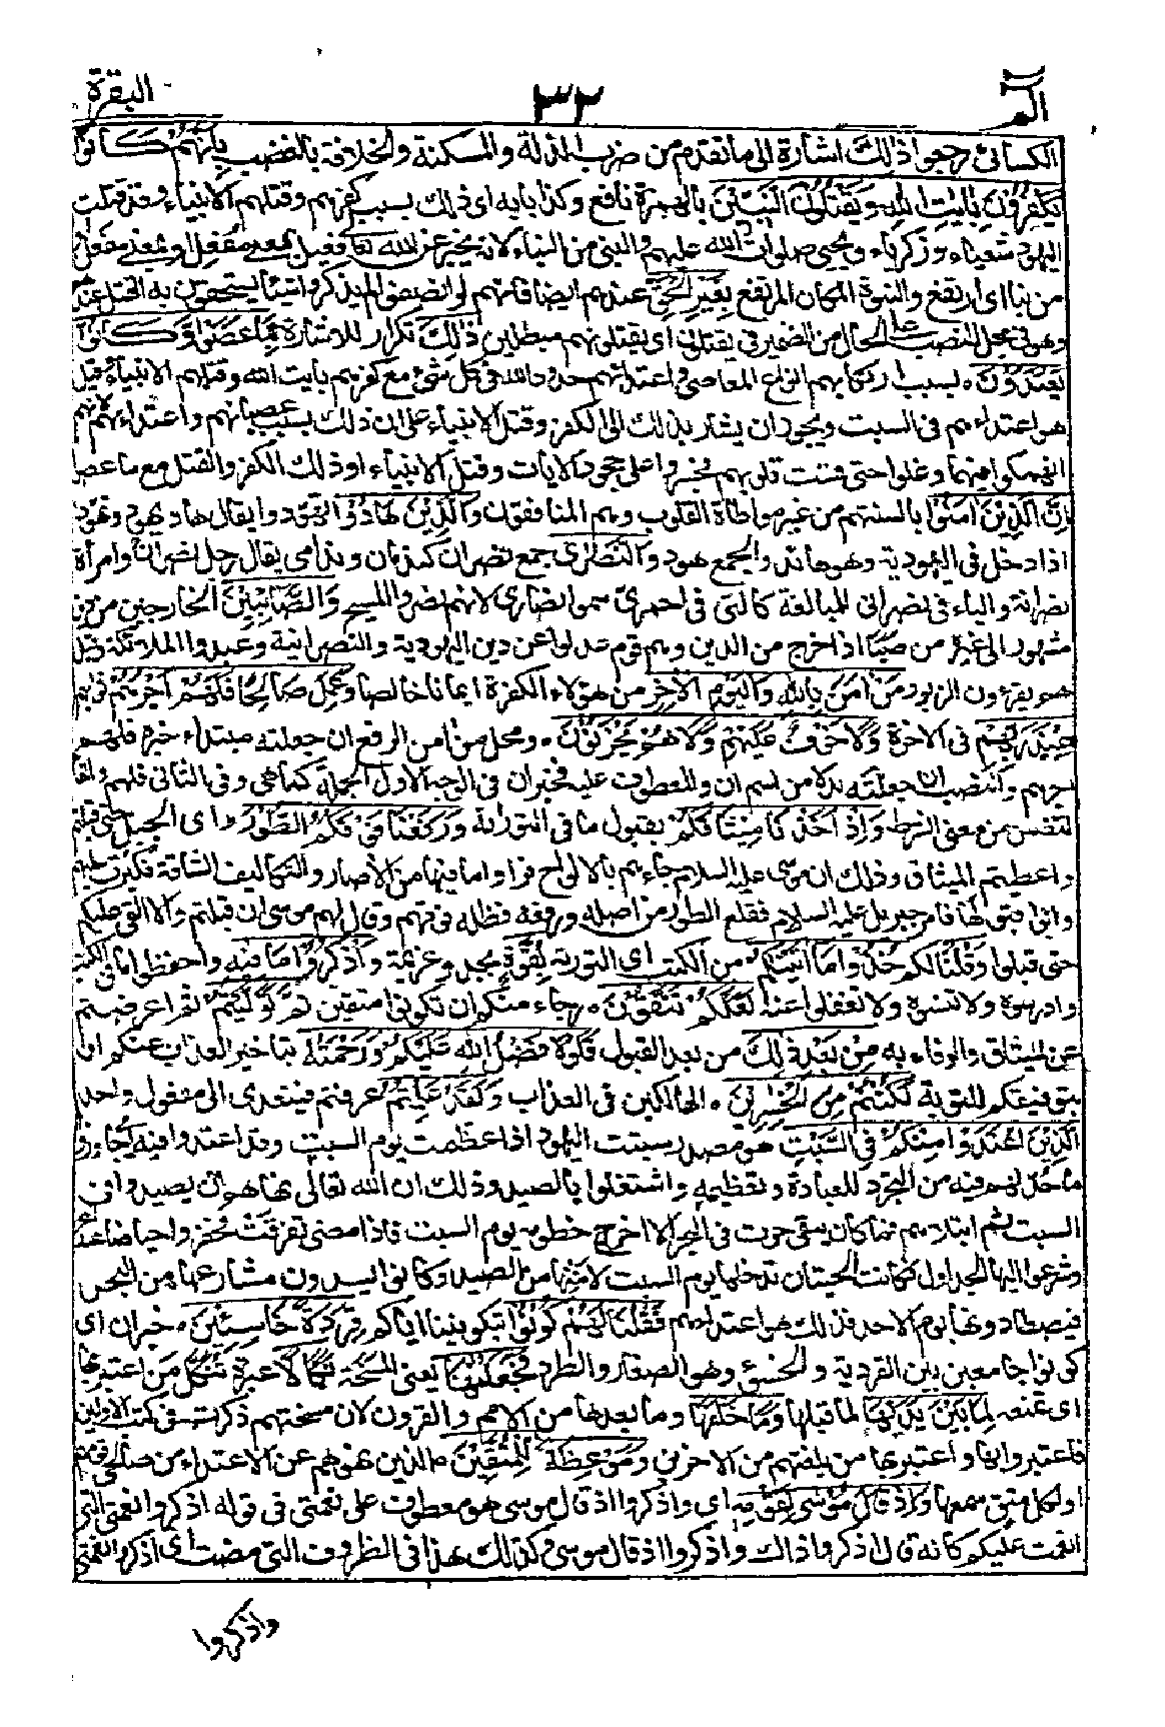 الم
٣٢
البقرة
الكسائي رجعوا ذٰلك اشارة الى ما تقدم من ضرب الذلة والمسكنة والخلافة بالغضب بانهم كانوا
يكفرون بايت الله ويقتلون النبيين بالهمزة نافع وكذا بابه اى ذلك بسبب كفرهم وقتلهم الانبياء وقد قتلت
اليهود شعياء وزكرياء ويحيى صلوات الله عليهم والنبى من النباء لانه يخبر عن الله تعالى فعيل بمعنى مفعل او بمعنى مفعل
من نبا اى ارتفع والنبوة المكان المرتفع بغير الحق عندهم ايضا فانهم لو انصفوا لم يذكروا شيئا يستحقون به القتل عندهم
وهو فى محل النصب على الحال من الضمير فى يقتلون اى يقتلونهم مبطلين ذلك تكرار للاشارة بما عصوا وكانوا
يعتدون ٥ بسبب ارتكابهم انواع المعاصى واعتدائهم حدود الله فى كل شىء مع كفرهم بايت الله وقتلهم الانبياء وقيل
هو اعتداءهم فى السبت ويجوز ان يشار بذلك الى الكفر وقتل الانبياء على ان ذلك بسبب عصيانهم واعتداءهم لانهم
انهمكوا فيهما وغلوا حتى قست قلوبهم فجسروا على جحود الايات وقتل الانبياء او ذلك الكفر والقتل مع ما عصوا
ان الذين امنوا بالسنتهم من غير مواطاة القلوب وهم المنافقون والذين هادوا تهودوا يقال هاد يهود وتهود
اذا دخل فى اليهودية وهو هائد والجمع هود والنصارى جمع نصران كندمان وندامى يقال رجل نصران وامرأة
نصرانة والياء فى نصرانى للمبالغة كالتى فى احمرى سموا نصارى لانهم نصروا المسيح والصابئين الخارجين من دين
مشهور الى غيره من صبا اذا خرج من الدين وهم قوم عدلوا عن دين اليهودية والنصرانية وعبدوا الملائكة وقيل
هم يقرءون الزبور من امن بالله واليوم الاخر من هؤلاء الكفرة ايمانا خالصا وعمل صالحا فلهم اجرهم ثوابهم
عند ربهم فى الاخرة ولا خوف عليهم ولا هم يحزنون ٥ ومحل من امن الرفع ان جعلته مبتداء خبره فلهم
اجرهم والنصب ان جعلته بدلا من اسم ان والمعطوف عليه فخبر ان فى الوجه الاول الجملة كما هى وفى الثانى فلهم والفاء
لتضمن من معنى الشرط واذ اخذنا ميثاقكم بقبول ما فى التوراة ورفعنا فوقكم الطور اى الجبل حتى قبلتم
واعطيتم الميثاق وذلك ان موسى عليه السلام جاءهم بالالواح فراوا ما فيها من الاصار والتكاليف الشاقة فكبرت عليهم
وابوا قبولها فامر جبريل عليه السلام فقلع الطور من اصله ورفعه فظلله فوقهم وقال لهم موسى ان قبلتم والا القى عليكم
حتى قبلوا وقلنا لكم خذوا ما اتينكم من الكتب اى التورية بقوة بجد وعزيمة واذكروا ما فيه واحفظوا ما فى الكتب
وادرسوه ولا تنسوه ولا تغفلوا عنه لعلكم تتقون ٥ رجاء منكم ان تكونوا متقين ثم توليتم ثم اعرضتم
عن الميثاق والوفاء به من بعد ذلك من بعد القبول فلولا فضل الله عليكم ورحمته بتاخير العذاب عنكم او
بتوفيقكم للتوبة لكنتم من الخسرين ٥ الهالكين فى العذاب ولقد علمتم عرفتم فيتعدى الى مفعول واحد
الذين اعتدوا منكم فى السبت هو مصدر سبتت اليهود اذا عظمت يوم السبت وقد اعتدوا فيه اى جاوزوا
ما حد لهم فيه من التجرد للعبادة وتعظيمه واشتغلوا بالصيد وذلك ان الله تعالى نهاهم ان يصيدوا فى
السبت ثم ابتلاهم فما كان يبقى حوت فى البحر الا اخرج خطومه يوم السبت فاذا مضى تفرقت فحفروا حياضا عند
وشرعوا اليها الجداول فكانت الحيتان تدخلها يوم السبت لامنها من الصيد وكانوا يسدون مشارعها من البحر
فيصطادونها يوم الاحد فذلك هو اعتداءهم فقلنا لهم كونوا بتكويننا اياكم قردة خاسئين ٥ خبر ان اى
كونوا جامعين بين القردية والخسئ وهو الصغار والطرد فجعلنها يعنى المسخة نكالا عبرة تنكل من اعتبر بها
اى تمنعه لما بين يديها لما قبلها وما خلفها وما بعدها من الامم والقرون لان مسختهم ذكرت فى كتب الاولين
فاعتبروا بها واعتبر بها من بلغتهم من الاخرين وموعظة للمتقين ٥ الذين نهوهم عن الاعتداء من صالحى قومهم
او لكل متق سمعها واذ قال موسى لقومه اى واذكروا اذ قال موسى هو معطوف على نعمتى فى قوله اذكروا نعمتى التى
انعمت عليكم كانه قال اذكروا ذاك واذكروا اذ قال موسى وكذلك هذا فى الظروف التى مضت اى اذكروا نعمتى
واذكروا